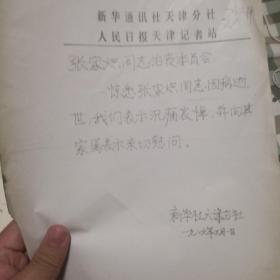 新华通讯社天津分社
人民日报天津记者站
张家炽同志治丧委员会
惊悉张家炽同志因病逝
世，我们表示沉痛哀悼，并向其
家属表示亲切慰问。
新华社天津分社